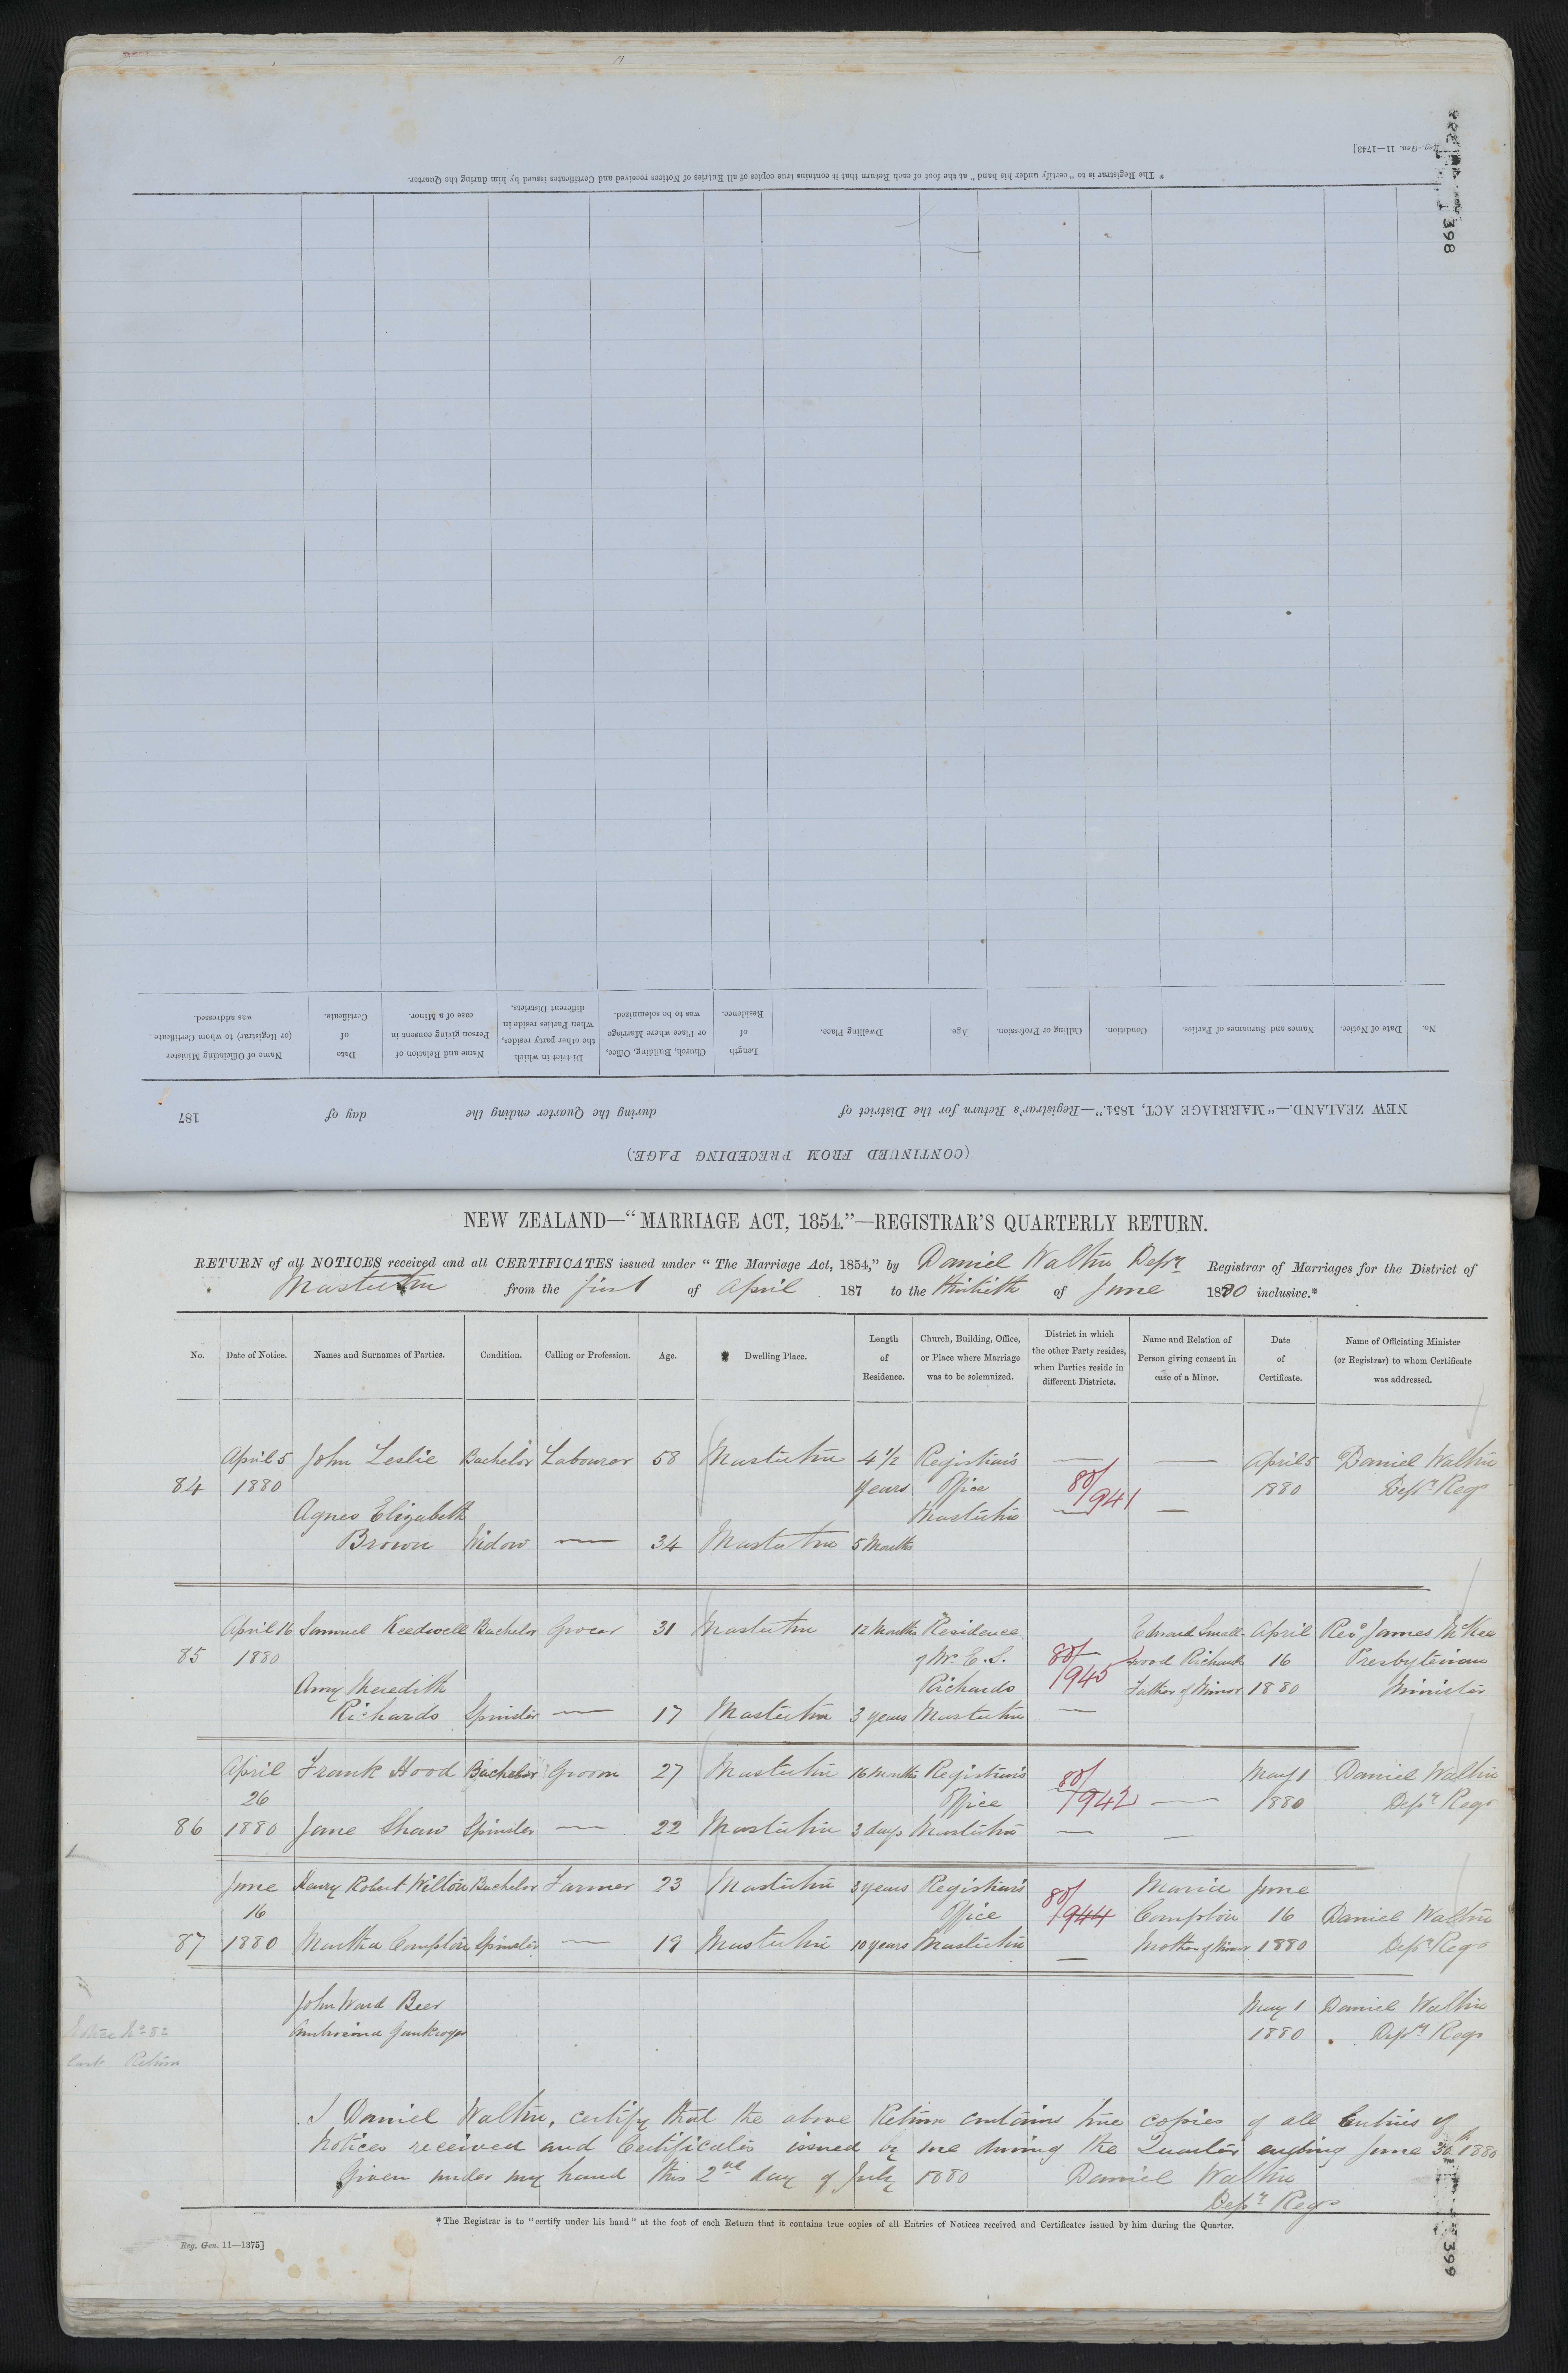 398
Reg.-Gen. 11—1743]
* The Registrar is to "certify under his hand" at the foot of each Return that it contains true copies of all Entries of Notices received and Certificates issued by him during the Quarter.
(CONTINUED FROM PRECEDING PAGE.)
NEW ZEALAND.—"MARRIAGE ACT, 1854."—Registrar's Return for the District of during the Quarter ending the day of 187
No. Date of Notice. Names and Surnames of Parties. Condition. Calling or Profession. Age. Dwelling Place. Length of Residence. Church, Building, Office, or Place where Marriage was to be solemnized. District in which the other party resides, when Parties reside in different Districts. Name and Relation of Person giving consent in case of a Minor. Date of Certificate. Name of Officiating Minister (or Registrar) to whom Certificate was addressed.
NEW ZEALAND—"MARRIAGE ACT, 1854."—REGISTRAR'S QUARTERLY RETURN.
RETURN of all NOTICES received and all CERTIFICATES issued under "The Marriage Act, 1854," by Daniel Walton Depy Registrar of Marriages for the District of
Masterton from the first of April 187 to the thirtieth of June 1880 inclusive.*
No. Date of Notice. Names and Surnames of Parties. Condition. Calling or Profession. Age. Dwelling Place. Length of Residence. Church, Building, Office, or Place where Marriage was to be solemnized. District in which the other Party resides, when Parties reside in different Districts. Name and Relation of Person giving consent in case of a Minor. Date of Certificate. Name of Officiating Minister (or Registrar) to whom Certificate was addressed.
April 5 John Leslie Bachelor Labourer 58 Masterton 4½ Registrar's — — April 5 Daniel Walton
84 1880 years Office 80/941 1880 Depy Regr
Agnes Elizabeth Masterton — —
Brown Widow — 34 Masterton 5 Months
April 16 Samuel Keedwell Bachelor Grocer 31 Masterton 12 Months Residence Edward Small- April Revd James McKee
85 1880 of Mr E. S. 80/945 wood Richards 16 Presbyterian
Amy Meredith Richards Father of Minor 1880 Minister
Richards Spinster — 17 Masterton 3 years Masterton —
April Frank Hood Bachelor Groom 27 Masterton 16 Months Registrar's May 1 Daniel Walton
26 Office 80/942 — 1880 Depy Regr
86 1880 Jane Shaw Spinster — 22 Masterton 3 days Masterton — —
June Henry Robert Wilton Bachelor Farmer 23 Masterton 3 years Registrar's Maria June
16 Office 80/944 Compton 16 Daniel Walton
87 1880 Martha Compton Spinster — 19 Masterton 10 years Masterton — Mother of Minor 1880 Depy Regr
John Ward Beer May 1 Daniel Walton
1880 Depy Regr
Notice No 82
last Return
I Daniel Walton, certify that the above Return contains true copies of all Entries of
Notices received and Certificates issued by me during the Quarter ending June 30th 1880
Given under my hand this 2nd day of July 1880 Daniel Walton
Depy Regr
* The Registrar is to "certify under his hand" at the foot of each Return that it contains true copies of all Entries of Notices received and Certificates issued by him during the Quarter.
Reg. Gen. 11—1375]
399